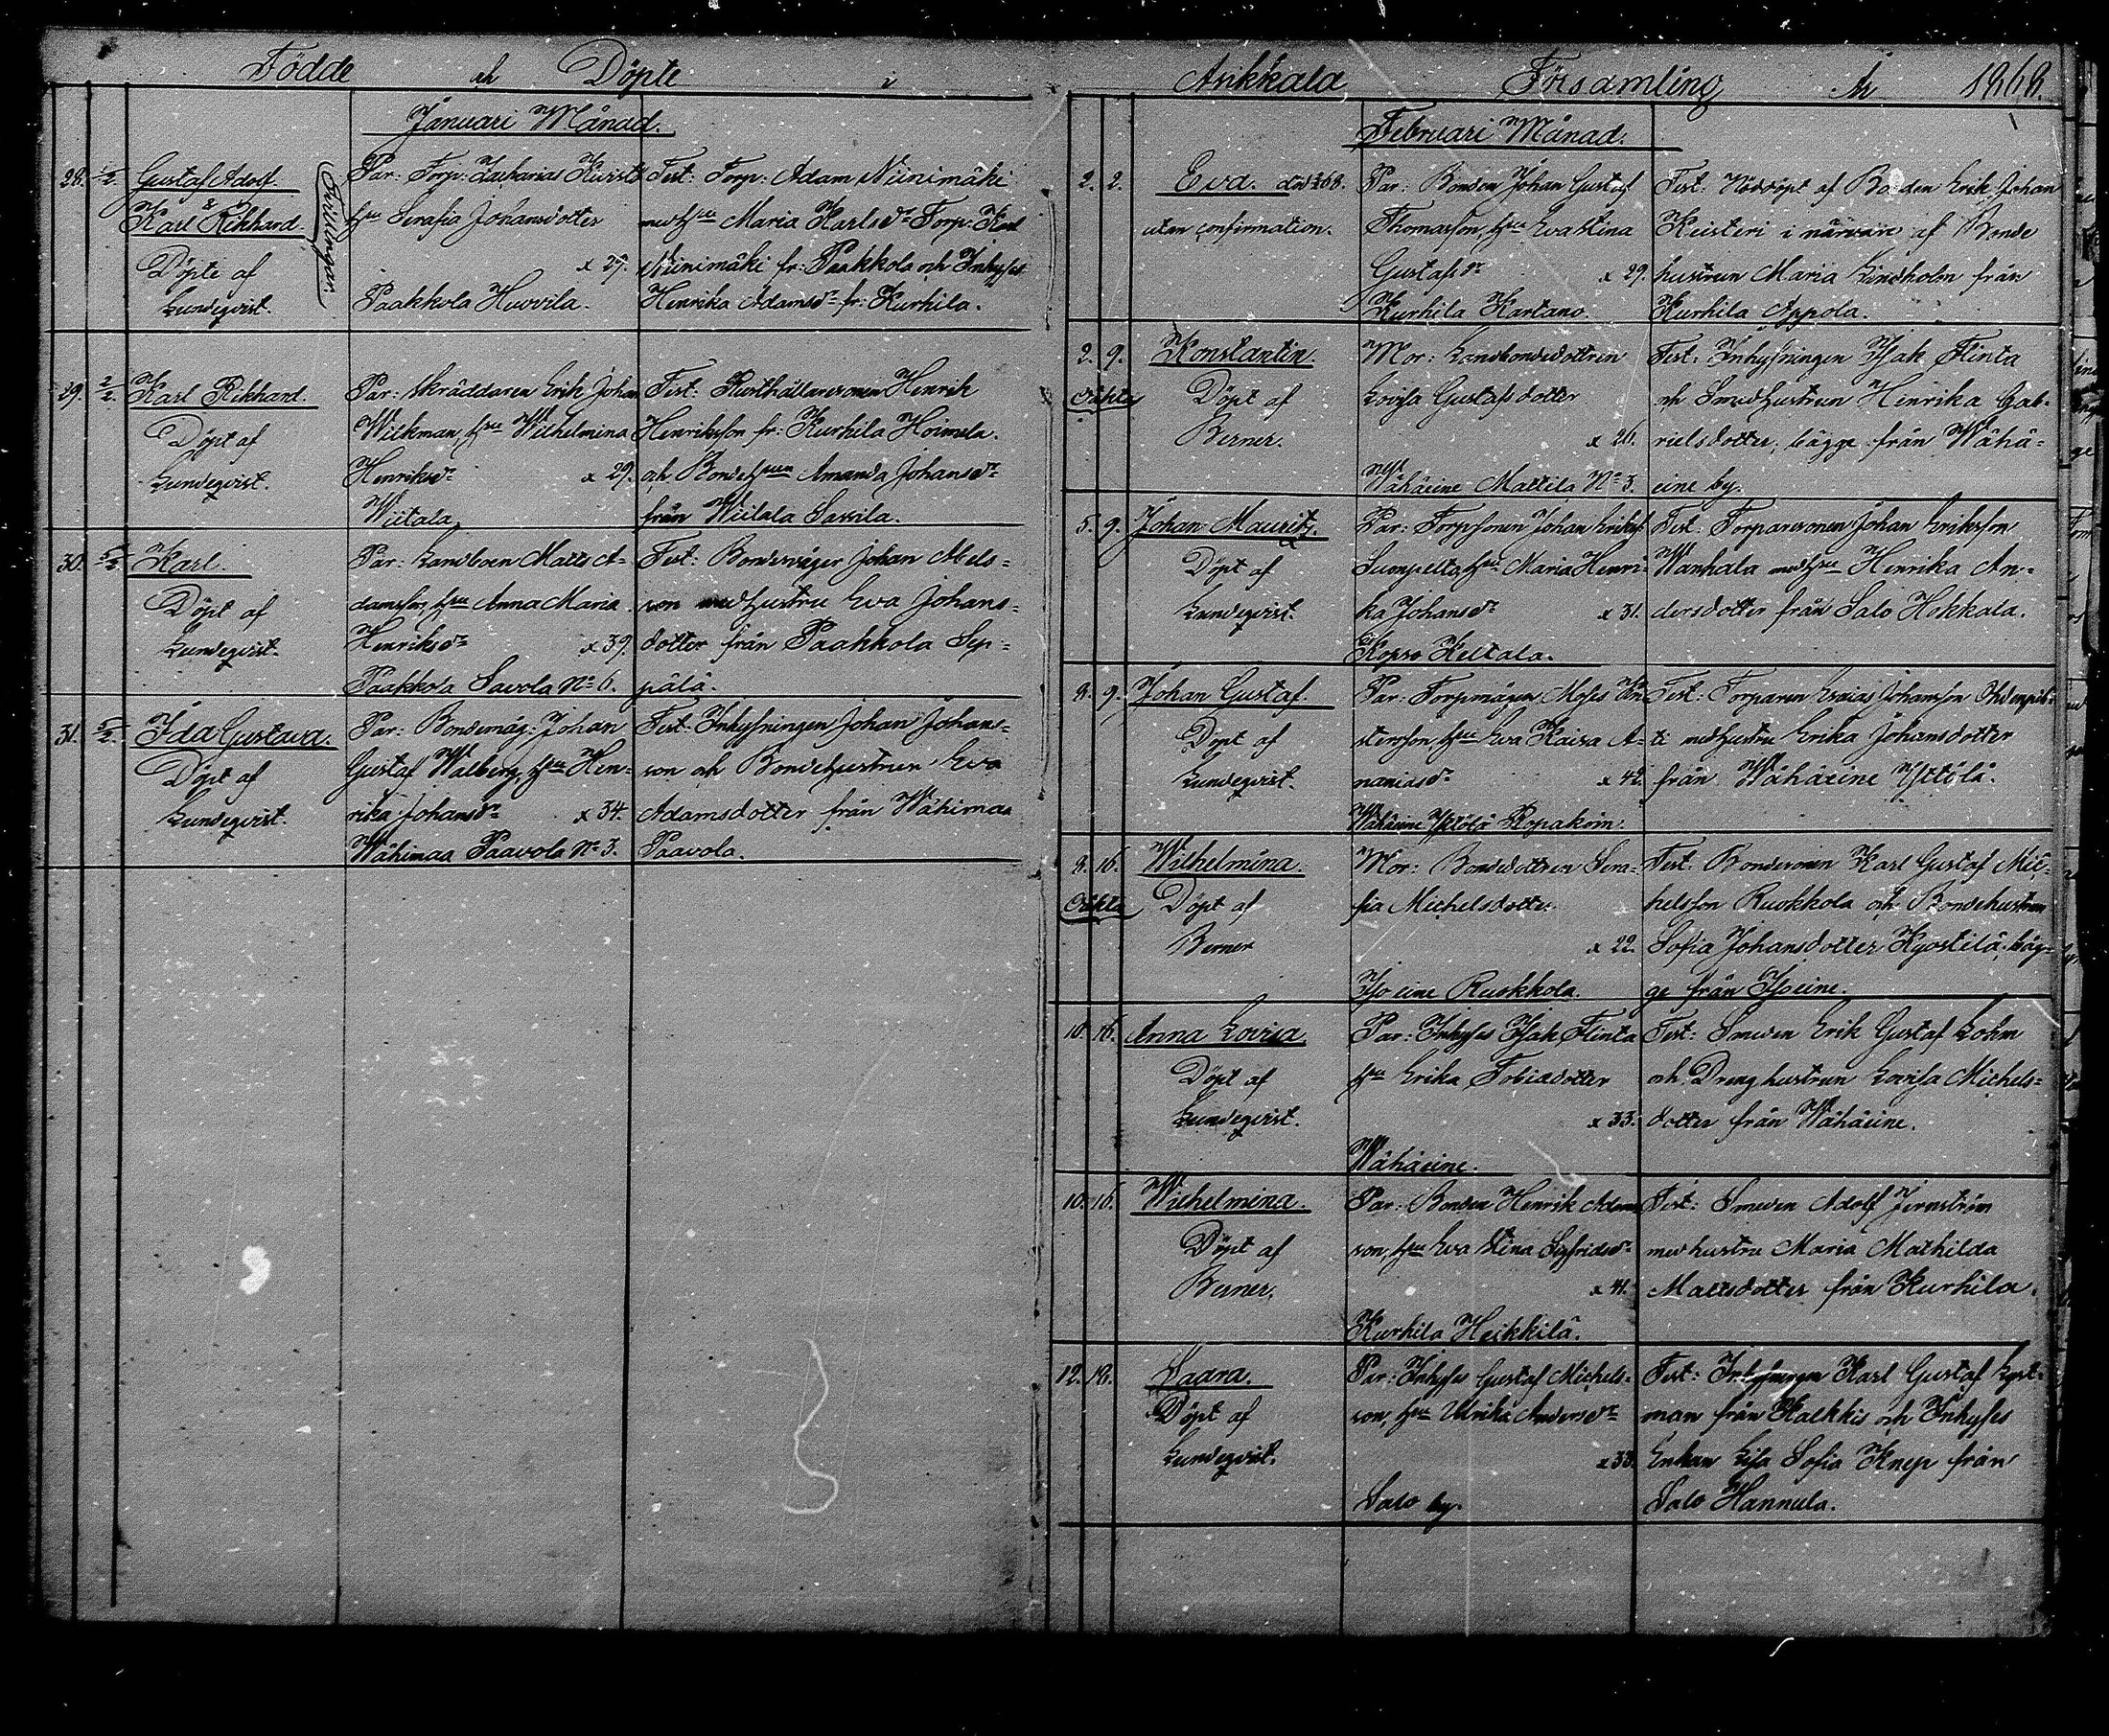 Födde och Döpte i
Januari Månad.
28. 2/2. Gustaf Adolf. & Karl Rikhard. Tvillingar
Döpte af
Lundeqvist.
Par: Torp: Zacharias Kuvist
hru Serafia Johansdotter
x 27.
Paakkola Huovila.
Test: Torp: Adam Niinimäki
med hru Maria Karlsdr Torp: Karl
Niinimäki fr: Paakkola och Inhyses
Henrika Adamsdr fr: Kurhila.
29. 2/2. Karl Rikhard.
Döpt af
Lundeqvist.
Par: Skräddaren Erik Johan
Wilkman, hru Wilhelmina
Henriksdr x 29.
Wiitala
Test: Henrik
Henriksson fr: Kurhila Hoimela.
och Bondehrun Amanda Johansdr
från Wiitala Sassila.
30. 5/2 Karl.
Döpt af
Lundeqvist.
Par: Landboen Matts A-
damsson, hru Anna Maria
Henriksdr x 39.
Paakkola Savola No 6.
Test: Bondemågen Johan Mels=
son med hustru Eva Johans=
dotter från Paakkola Sep=
pälä.
31. 5/2. Ida Gustava.
Döpt af
Lundeqvist.
Par: Bondemåg: Johan
Gustaf Walberg, hru Hen-
rika Johansdr x 34.
Wähimaa Paavola No 3.
Test: Inhysningen Johan Johans=
son och Bondehustrun Eva
Adamsdotter från Wähimaa
Paavola.
Asikkala Församling År 1868.
Februari Månad.
2. 2. Eva.
utan confirmation.
Par: Bonden Johan Gustaf
Thomasson, hru Eva Stina
Gustafsdr x 29.
Kurhila Kartano
Test: Nöddöpt af Bonden Erik Johan
Keisteri i närvaro af Bonde
hustrun Maria Lindholm från
Kurhila Appola.
2. 9. Konstantin.
Oäkta Döpt af
Berner.
Mor: Landbondedottren
Lovisa Gustafsdotter
x 26.
Wähäeine Mattila No 3.
Test: Inhysningen Isak Flinta
och Smedhustrun Henrika Gab-
rielsdotter, bägge från Wähä=
eine by.
5. 9. Johan Mauritz.
Döpt af
Lundeqvist.
Par: Torpsonen Johan Eriksson
Lumpelto, hru Maria Henri-
ka Johansdr x 31.
Kopso Keltala.
Test: Torparesonen Johan Eriksson
Wanhala med hru Henrika An-
dersdotter från Salo Hokkala.
8. 9. Johan Gustaf.
Döpt af
Lundeqvist.
Par: Torpmågen Moses
hru Eva Kaisa A-
naniasdr x 42.
Wähäeine Yltölä
Test: Torparen Esaias Johansson
med hustru Erika Johansdotter
från Wähäeine Yltölä.
8. 16. Wilhelmina.
Oäkta Döpt af
Berner
Mor: Bondedottren Sera-
fia Michelsdotter.
x 22.
Iso eine Ruokkola.
Test: Bondesonen Karl Gustaf Mic-
helsson Ruokkola och Bondehustrun
Sofia Johansdotter Kyöstilä, bäg-
ge från Isoeine.
10. 16. Anna Lovisa.
Döpt af
Lundeqvist.
Par: Inhyses Isak Flinta
hru Erika Tobiasdotter
x 33.
Wähäeine.
Test: Smeden Erik Gustaf Böhm
och Dreng hustrun Lovisa Michels=
dotter från Wähäeine.
10. 16. Wilhelmina.
Döpt af
Berner.
Par: Bonden Henrik Adams
son, hru Eva Stina Sigfridsdr
x 41.
Kurhila Heikkilä.
Test: Smeden Adolf Jernström
med hustru Maria Mathilda
Mattsdotter från Kurhila.
12. 18. Saara.
Döpt af
Lundeqvist.
Par: Inhyses Gustaf Michels=
son, hru Ulrika Andersdr
x 33.
Salo by.
Test: Inhysningen Karl Gustaf
man från Kalkkis och Inhyses
Enkan Lisa Sofia Knep från
Salo Hannula.